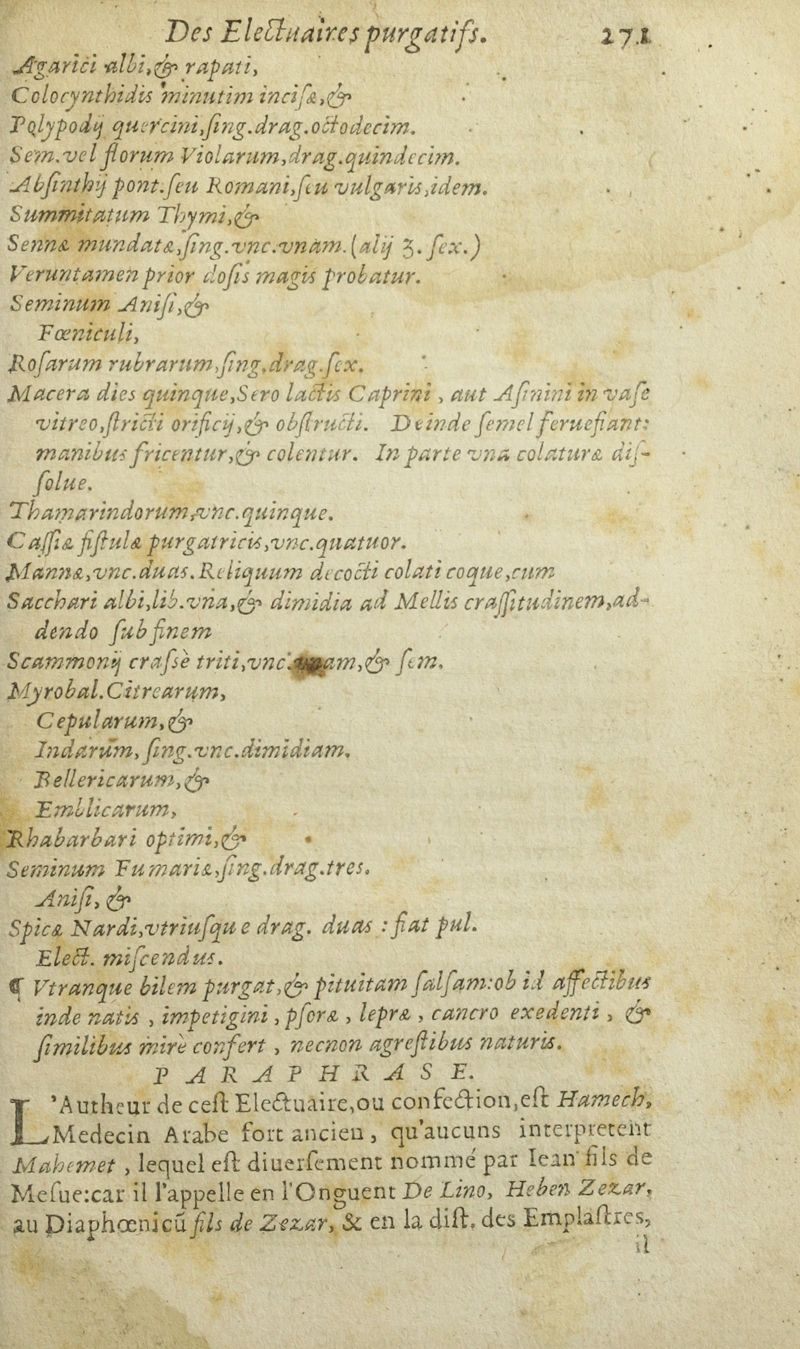 Des Electuaires purgatifs. 271
Agarici albi,& rapati,
Colocynthidis minutim incisæ,&
Polypodij quercini,sing.drag.octodecim.
Sem.vel florum Violarum,drag.quindecim.
Absinthij pont.seu Romani,seu vulgaris,idem.
Summitatum Thymi,&
Sennæ mundatæ,sing.vnc.vnam.(alij ʒ.sex.)
Veruntamen prior dosis magis probatur.
Seminum Anisi,&
Fœniculi,
Rosarum rubrarum,sing.drag.sex.
Macera dies quinque,Sero lactis Caprini, aut Asinini in vase
vitreo,stricti orificij,& obstructi. Deinde semel feruefiant:
manibus fricentur,& colentur. In parte vna colaturæ dis-
solue.
Thamarindorum,vnc.quinque.
Cassiæ fistulæ purgatricis,vnc.quatuor.
Mannæ,vnc.duas.Reliquum decocti colati coque,cum
Sacchari albi,lib.vna,& dimidia ad Mellis crassitudinem,ad-
dendo sub finem
Scammonij crasse triti,vnc. &sem.
Myrobal.Citrearum,
Cepularum,&
Indarum,sing.vnc.dimidiam.
Bellericarum,&
Emblicarum,
Rhabarbari optimi,&
Seminum Fumariæ,sing.drag.tres.
Anisi, &
Spicæ Nardi,vtriusque drag. duas : fiat pul.
Elect. miscendus.
¶ Vtranque bilem purgat,& pituitam salsam:ob id affectibus
inde natis , impetigini , psoræ , lepræ , cancro exedenti , &
similibus mirè confert , necnon agrestibus naturis.
PARAPHRASE.
L'Autheur de cest Electuaire,ou confection,est Hamech,
Medecin Arabe fort ancien, qu'aucuns interpretent
Mahemet , lequel est diuersement nommé par Iean fils de
Mesue:car il l'appelle en l'Onguent De Lino, Heben Zezar,
au Diaphœnicũ fils de Zezar, & en la dist. des Emplastres,
il